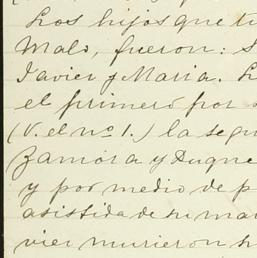 Los hijos que tu
Malo, fueron: S
Javier y Maria. L
el primero por s
(V. el nº 1.) la segu
Zamora y Duque
y por medio de p
asistida de su mar
vier murieron s